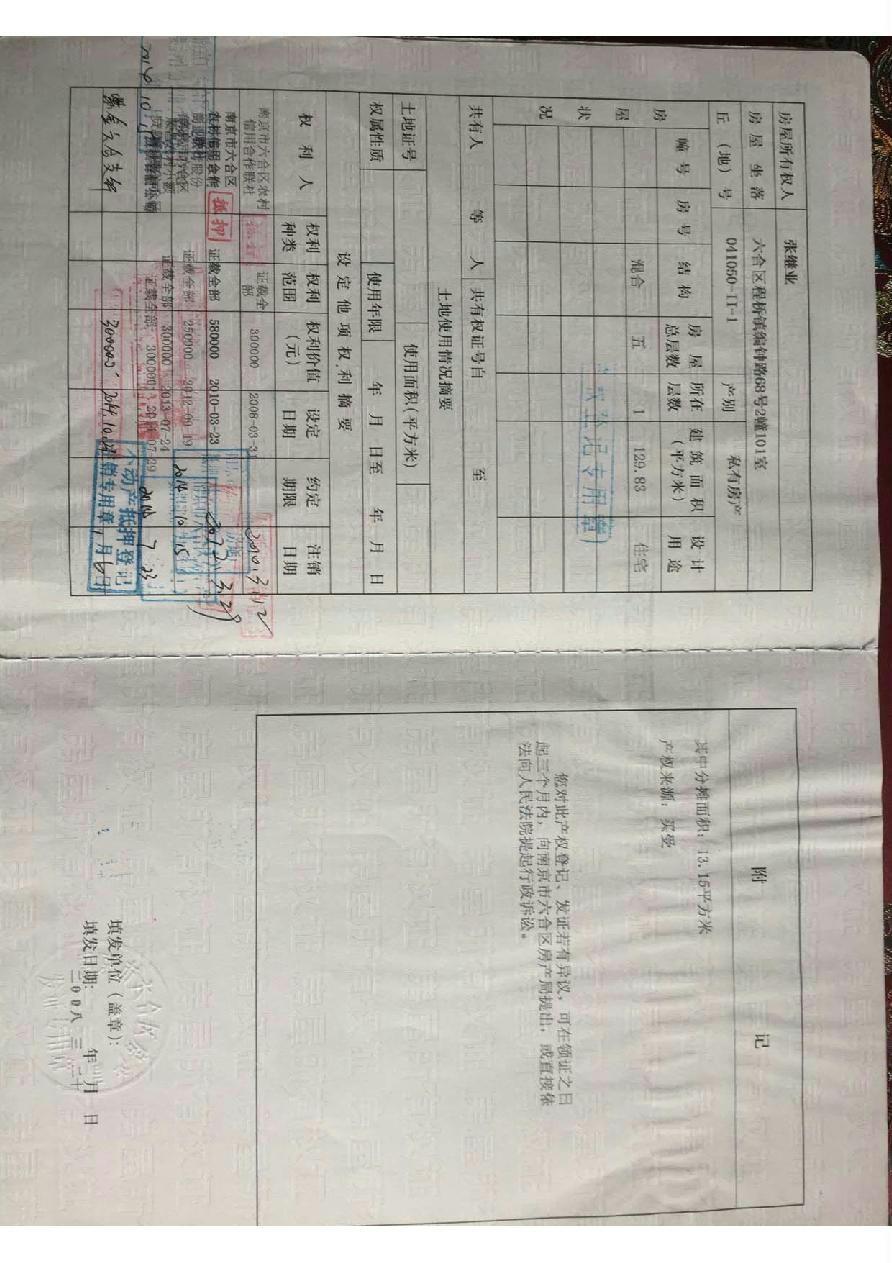 房屋所有权人 张继业
房屋坐落 六合区程桥镇编钟路68号2幢101室
丘（地）号 041050-II-1 产别 私有房产
房屋状况
幢号 房号 结构 房屋总层数 所在层数 建筑面积（平方米） 设计用途
混合 五 1 129.83 住宅
共有人 等 人 共有权证号自 至
土地使用情况摘要
土地证号 使用面积(平方米)
权属性质 使用年限 年 月 日至 年 月 日
设定他项权利摘要
权利人 权利种类 权利范围 权利价值（元） 设定日期 约定期限 注销日期
南京市六合区农村信用合作联社 证载全部 300000 2008-03-31 2010.3.12
南京市六合区农村信用合作 抵押 证载全部 580000 2010-03-23
证载全部 250000 2012-09-19
证载全部 300000 2013-07-24
证载全部 300000
300000 2014.10.
不动产抵押登记
销专用章
登记专用章
附 记
其中分摊面积：13.15平方米
产权来源：买受
您对此产权登记、发证若有异议，可在领证之日
起三个月内，向南京市六合区房产局提出，或直接依
法向人民法院提起行政诉讼。
填发单位（盖章）：
填发日期： 二00八 年 三 月 二十 日